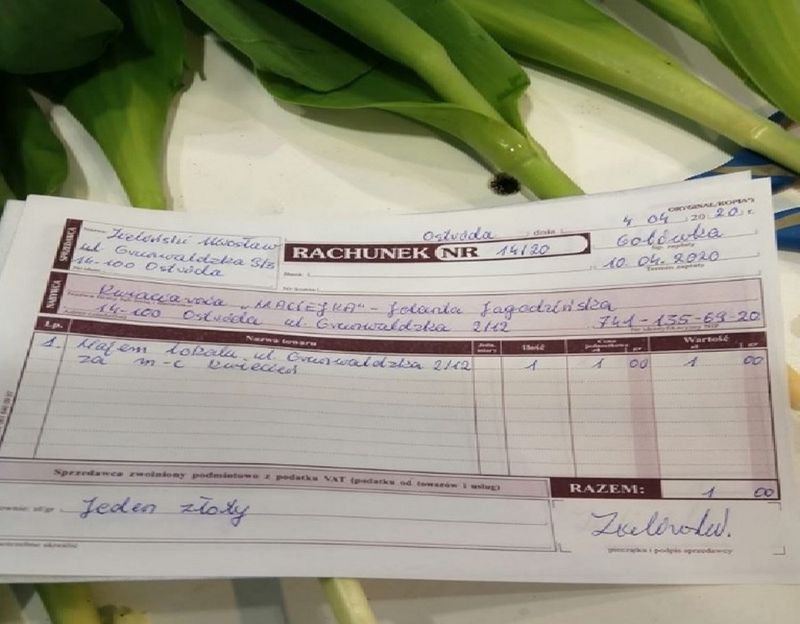 ORYGINAŁ/KOPIA*)
Ostróda dnia 4 04 20 20 r.
SPRZEDAWCA
Nazwa Zieliński Mirosław
ul Grunwaldzka
14-100 Ostróda
RACHUNEK NR 14/20
Gotówka
Sp. zapłaty
Bank:
Nr konta:
10.04.2020
Termin zapłaty
NABYWCA
Kwiaciarnia „MACIEJKA" - Jolanta Jagodzińska
14-100 Ostróda ul Grunwaldzka 2/12
741-135-69-20
Lp. Nazwa towaru Jedn. miary Ilość Cena jednostkowa zł gr Wartość zł gr
1. Najem lokalu ul Grunwaldzka 2/12 1 1 00 1 00
za m-c kwiecień
Sprzedawca zwolniony podmiotowo z podatku VAT (podatku od towarów i usług)
RAZEM: 1 00
Jeden złoty
pieczątka i podpis sprzedawcy